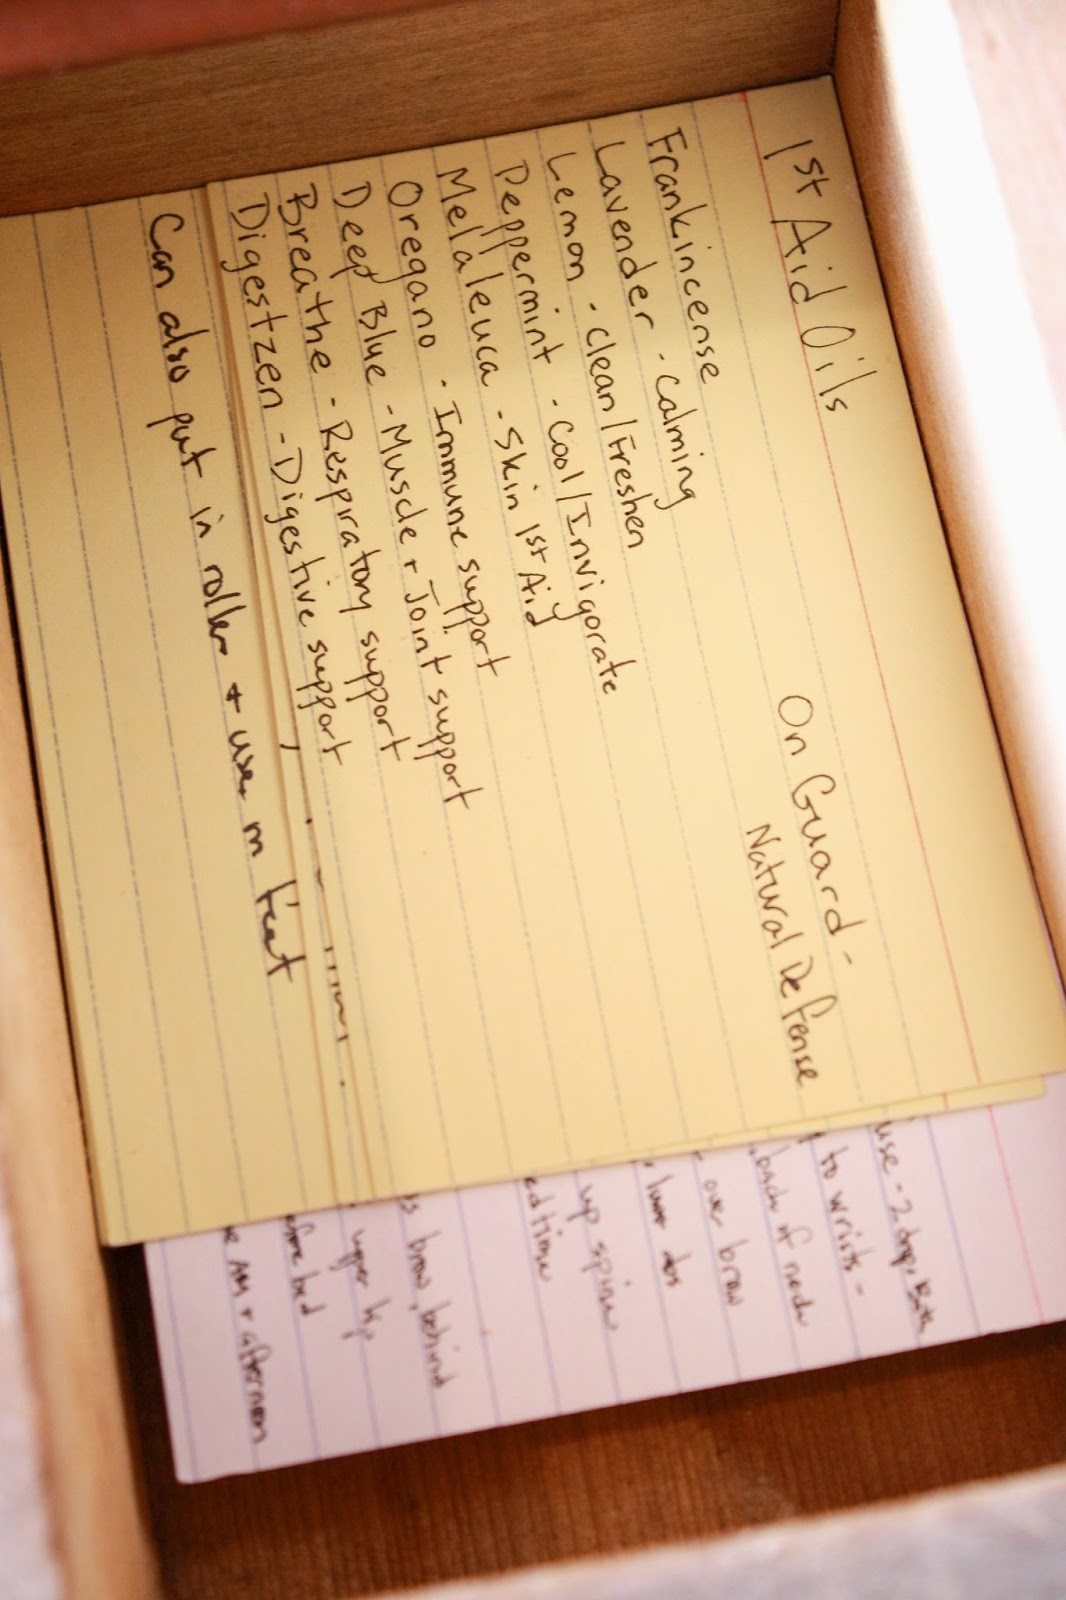 1st Aid Oils
On Guard -
Natural Defense
Frankincense
Lavender - Calming
Lemon - clean/Freshen
Peppermint - Cool/Invigorate
Melaleuca - Skin 1st Aid
Oregano - Immune support
Deep Blue - Muscle + Joint support
Breathe - Respiratory support
Digestzen - Digestive support
Can also put in roller + use on feet
use - 2 drops
to wrists -
back of neck
over brow
lower
up spine
brow, behind
upper lip
bed
AM + afternoon